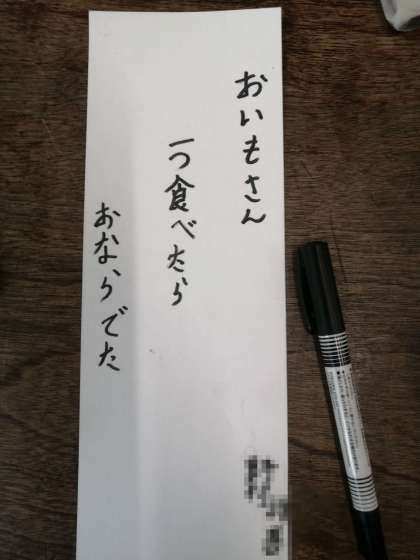 おいもさん
一つ食べたら
おならでた